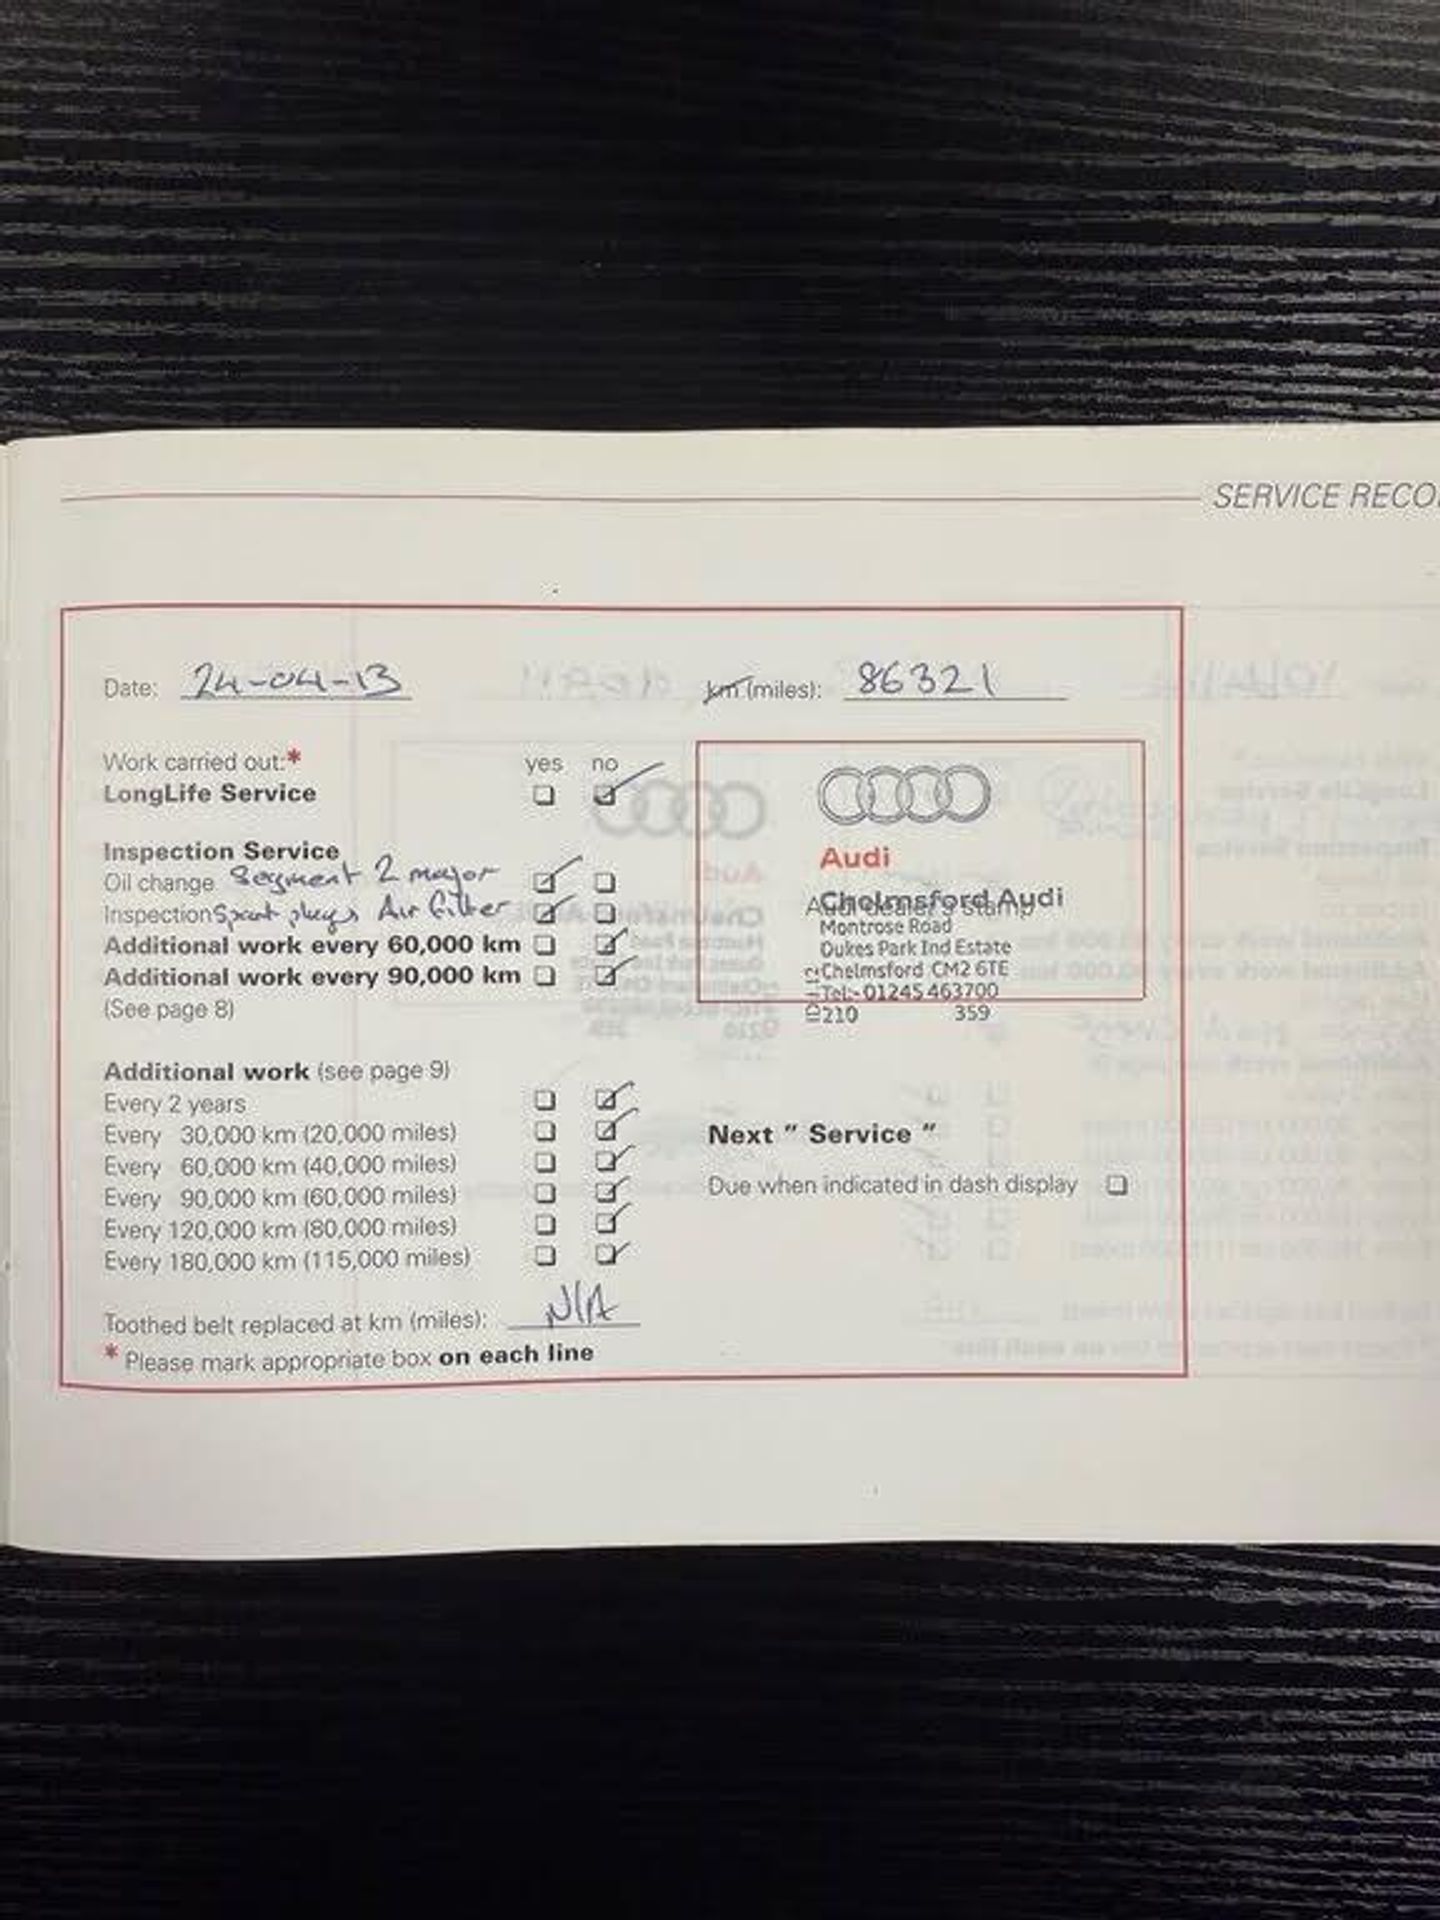 SERVICE RECO
Date: 24-04-13
km (miles): 86321
Work carried out:* yes no
LongLife Service
Inspection Service
Oil change Segment 2 major
Inspection Spark plugs Air filter
Additional work every 60,000 km
Additional work every 90,000 km
(See page 8)
Audi
Chelmsford Audi
Audi dealer's stamp
Montrose Road
Dukes Park Ind Estate
Chelmsford CM2 6TE
Tel:- 01245 463700
210 359
Additional work (see page 9)
Every 2 years
Every 30,000 km (20,000 miles)
Every 60,000 km (40,000 miles)
Every 90,000 km (60,000 miles)
Every 120,000 km (80,000 miles)
Every 180,000 km (115,000 miles)
Next " Service "
Due when indicated in dash display
Toothed belt replaced at km (miles): N/A
* Please mark appropriate box on each line